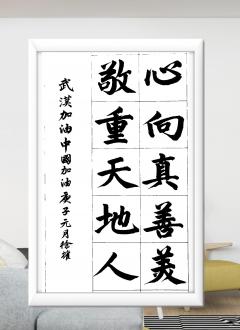 心向真善美
敬重天地人
武漢加油中國加油庚子元月徐雄